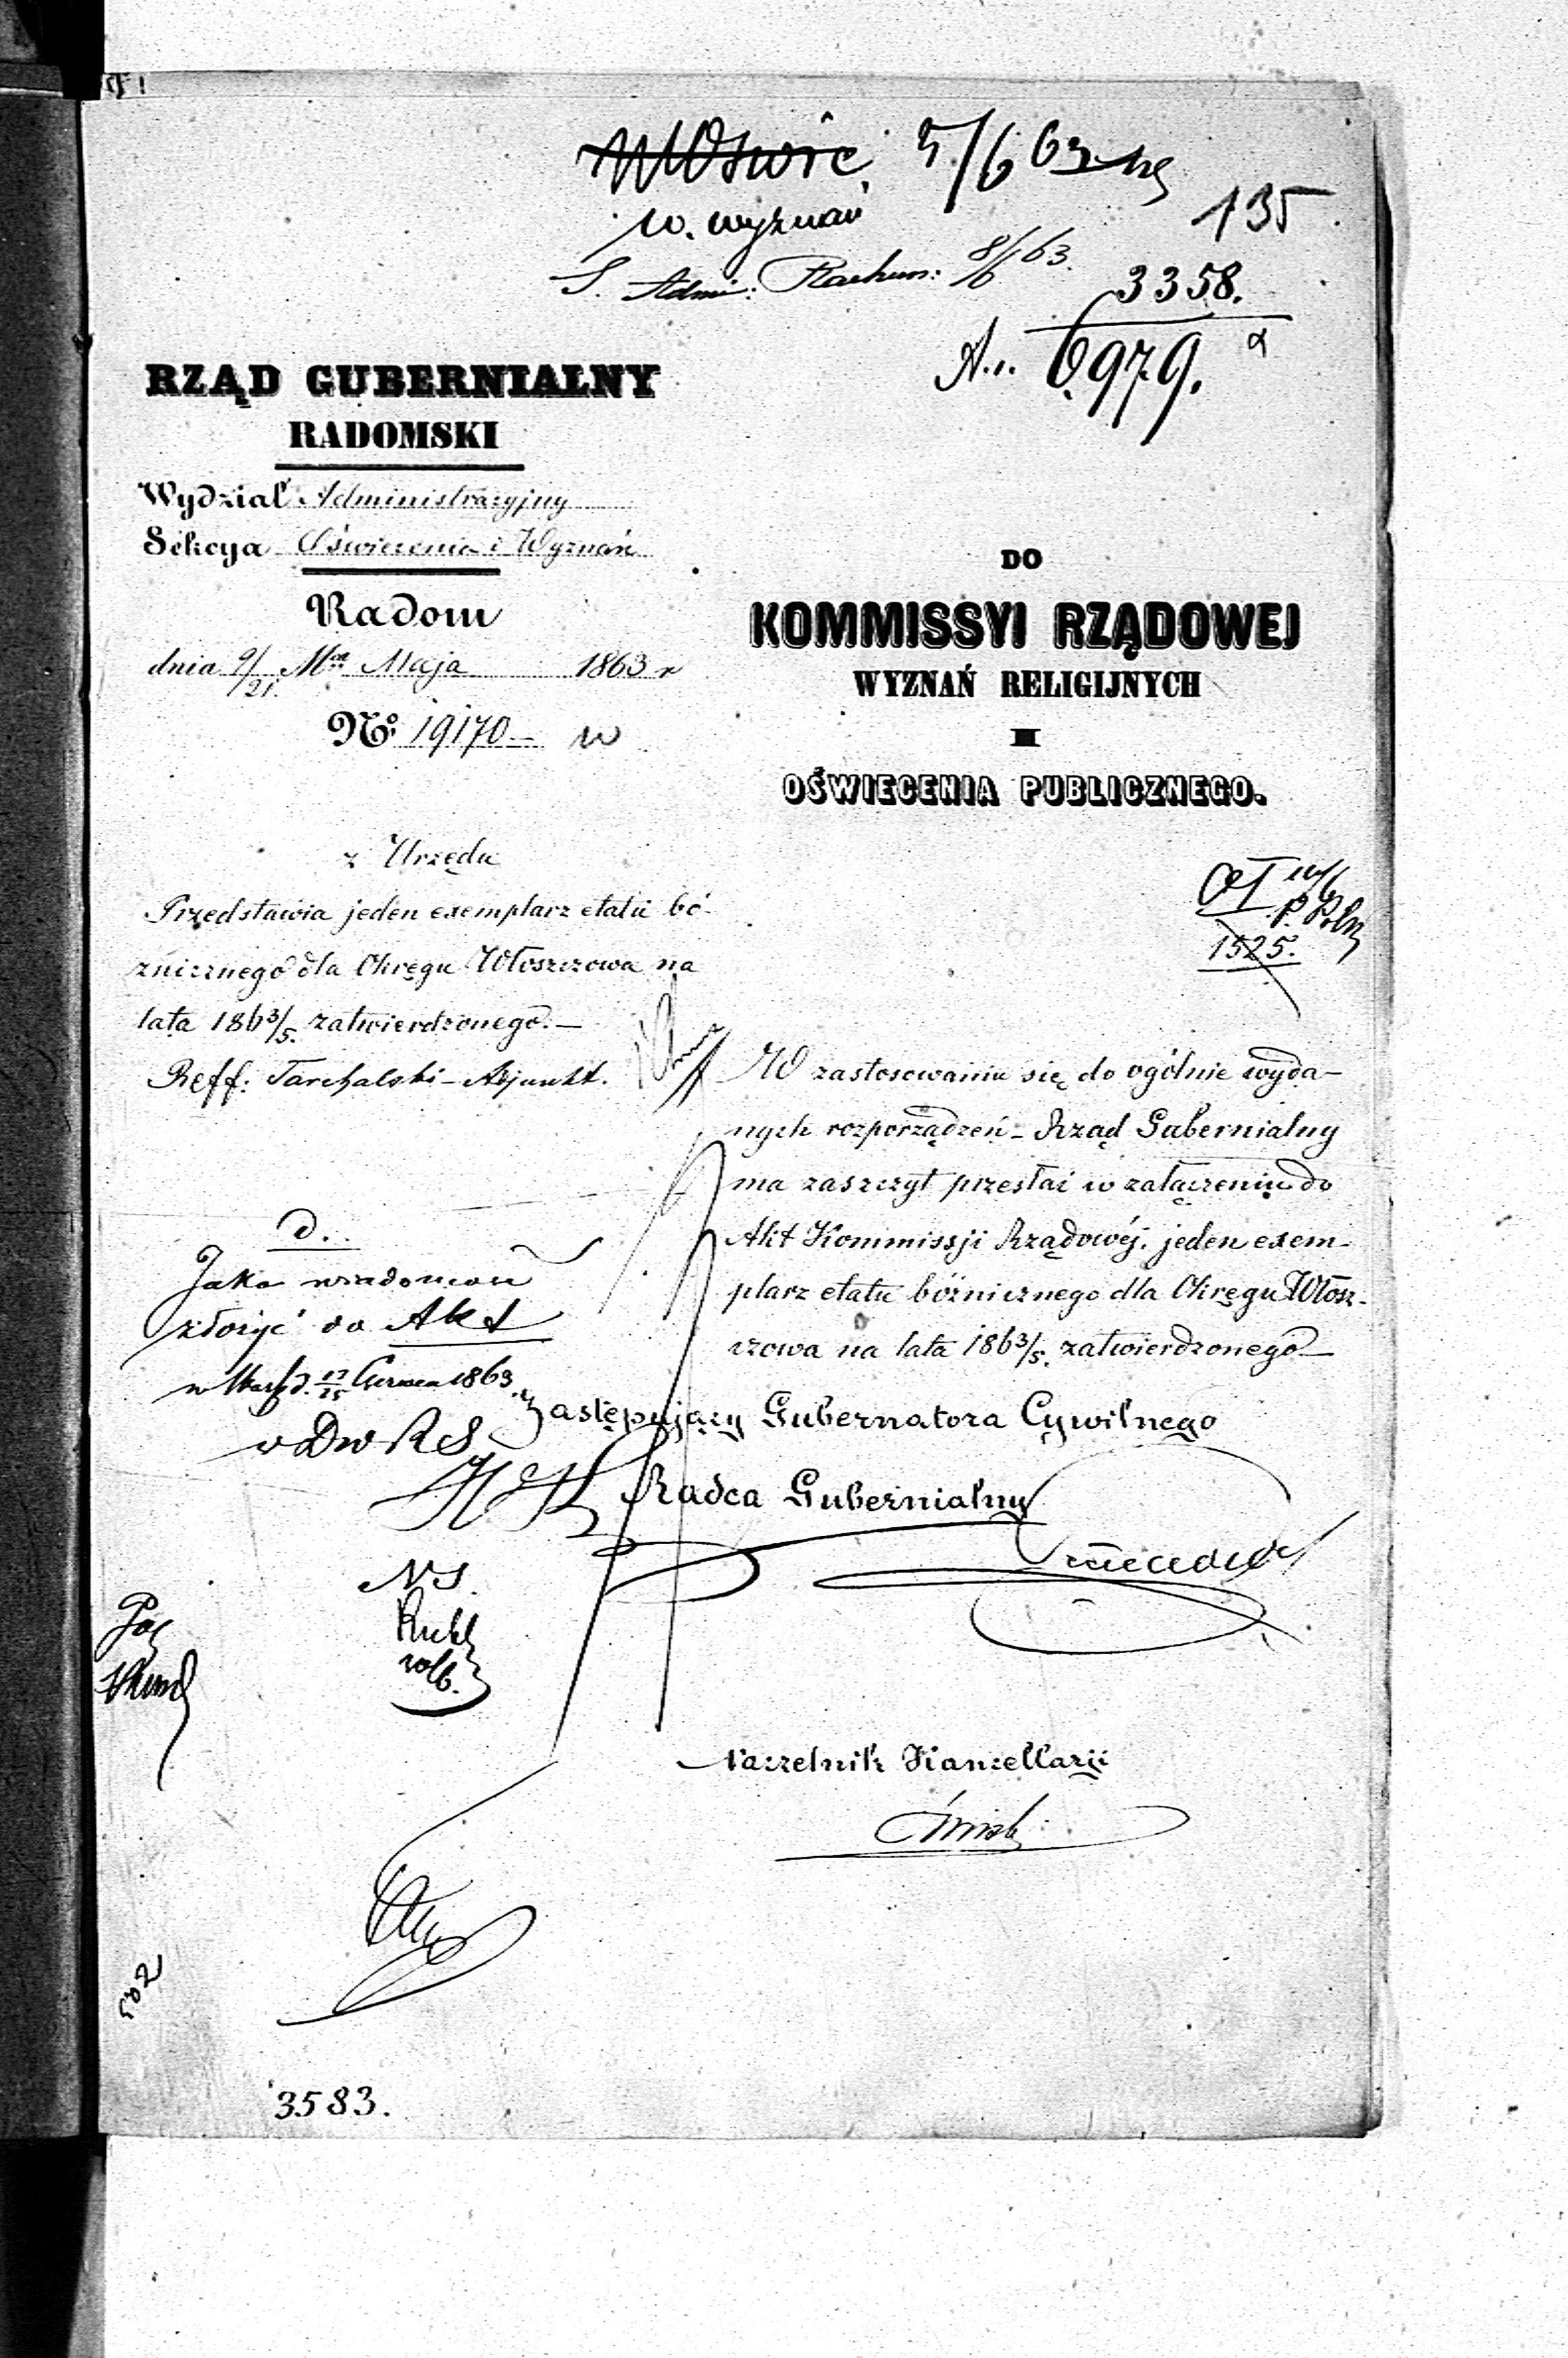 5/6 63
w. wyznań
135
S. Admi: Rachun: 8/6 63.
3358.
6979.
RZĄD GUBERNIALNY
RADOMSKI
Wydział Administracyjny
Sekcya Oświecenia i Wyznań
Radom
dnia 9/21. Maja 1863 r
No: 19170 —
DO
KOMMISSYI RZĄDOWEJ
WYZNAŃ RELIGIJNYCH
I
OŚWIECENIA PUBLICZNEGO.
z Urzędu
Przedstawia jeden exemplarz etatu bó-
żnicznego dla Okręgu Włoszczowa na
lata 1863/5. zatwierdzonego. —
Reff: Tarchalski - Adjunkt.
1525.
W zastosowaniu się do ogólnie wyda-
nych rozporządzeń - Rząd Gubernialny
ma zaszczyt przesłać w załączeniu do
Akt Kommissji Rządowéj. jeden exem-
plarz etatu bóżnicznego dla Okręgu Włosz-
czowa na lata 1863/5. zatwierdzonego —
d.
Jako
złożyć do Akt
1863
Zastępujący Gubernatora Cywilnego
Radca Gubernialny
NS.
Naczelnik Kancellarii
502
3583.